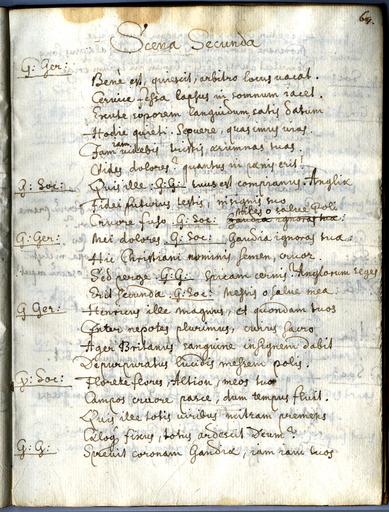 6
Scena Secunda
G: Ger:
Bene est, quiescit, arbitro locus vacat.
Cervice fessa lapsus in somnum iacet.
Excute soporem languidum satis datum
Hodie quieti. Sopwere, quas mus vias.
iam
Jam videbis tristis aerumnas tuas.
Vides dolores? quantus in panis eris!
G: Soc: Quis ille :G:G: tuus est comprannus. Anglia
Fidei futurus testis, insignis suo
Miles o salve Poli
Cruore fuso. G: Soc: gaudia ignoras tua:
G: Ger: Mei dolores. G: Soc: Gaudia ignoras tua
Hic Christiani nominis semen, cruor.
Sed perge :G:G: Spicam cernis? Anglorum seges
Erit secunda :G:Soc: Messis o salve mea.
G Ger: Henricus ille magnus, et quondam tuos
Inter nepotes plurimus, cuius sacro
Ager Britanus sanguine insignem dabit
Depurpuratus lucidis messem polis.
G: Soc: Florete flores, Albion, meos tuo
Campos cruore pasce, dum tempus fluit.
Quis ille totis viribus nitram premens
Caeloq fixus, totus ardescit Deum?
G: G: Sprevit coronam Gandiae, iam iam tuos